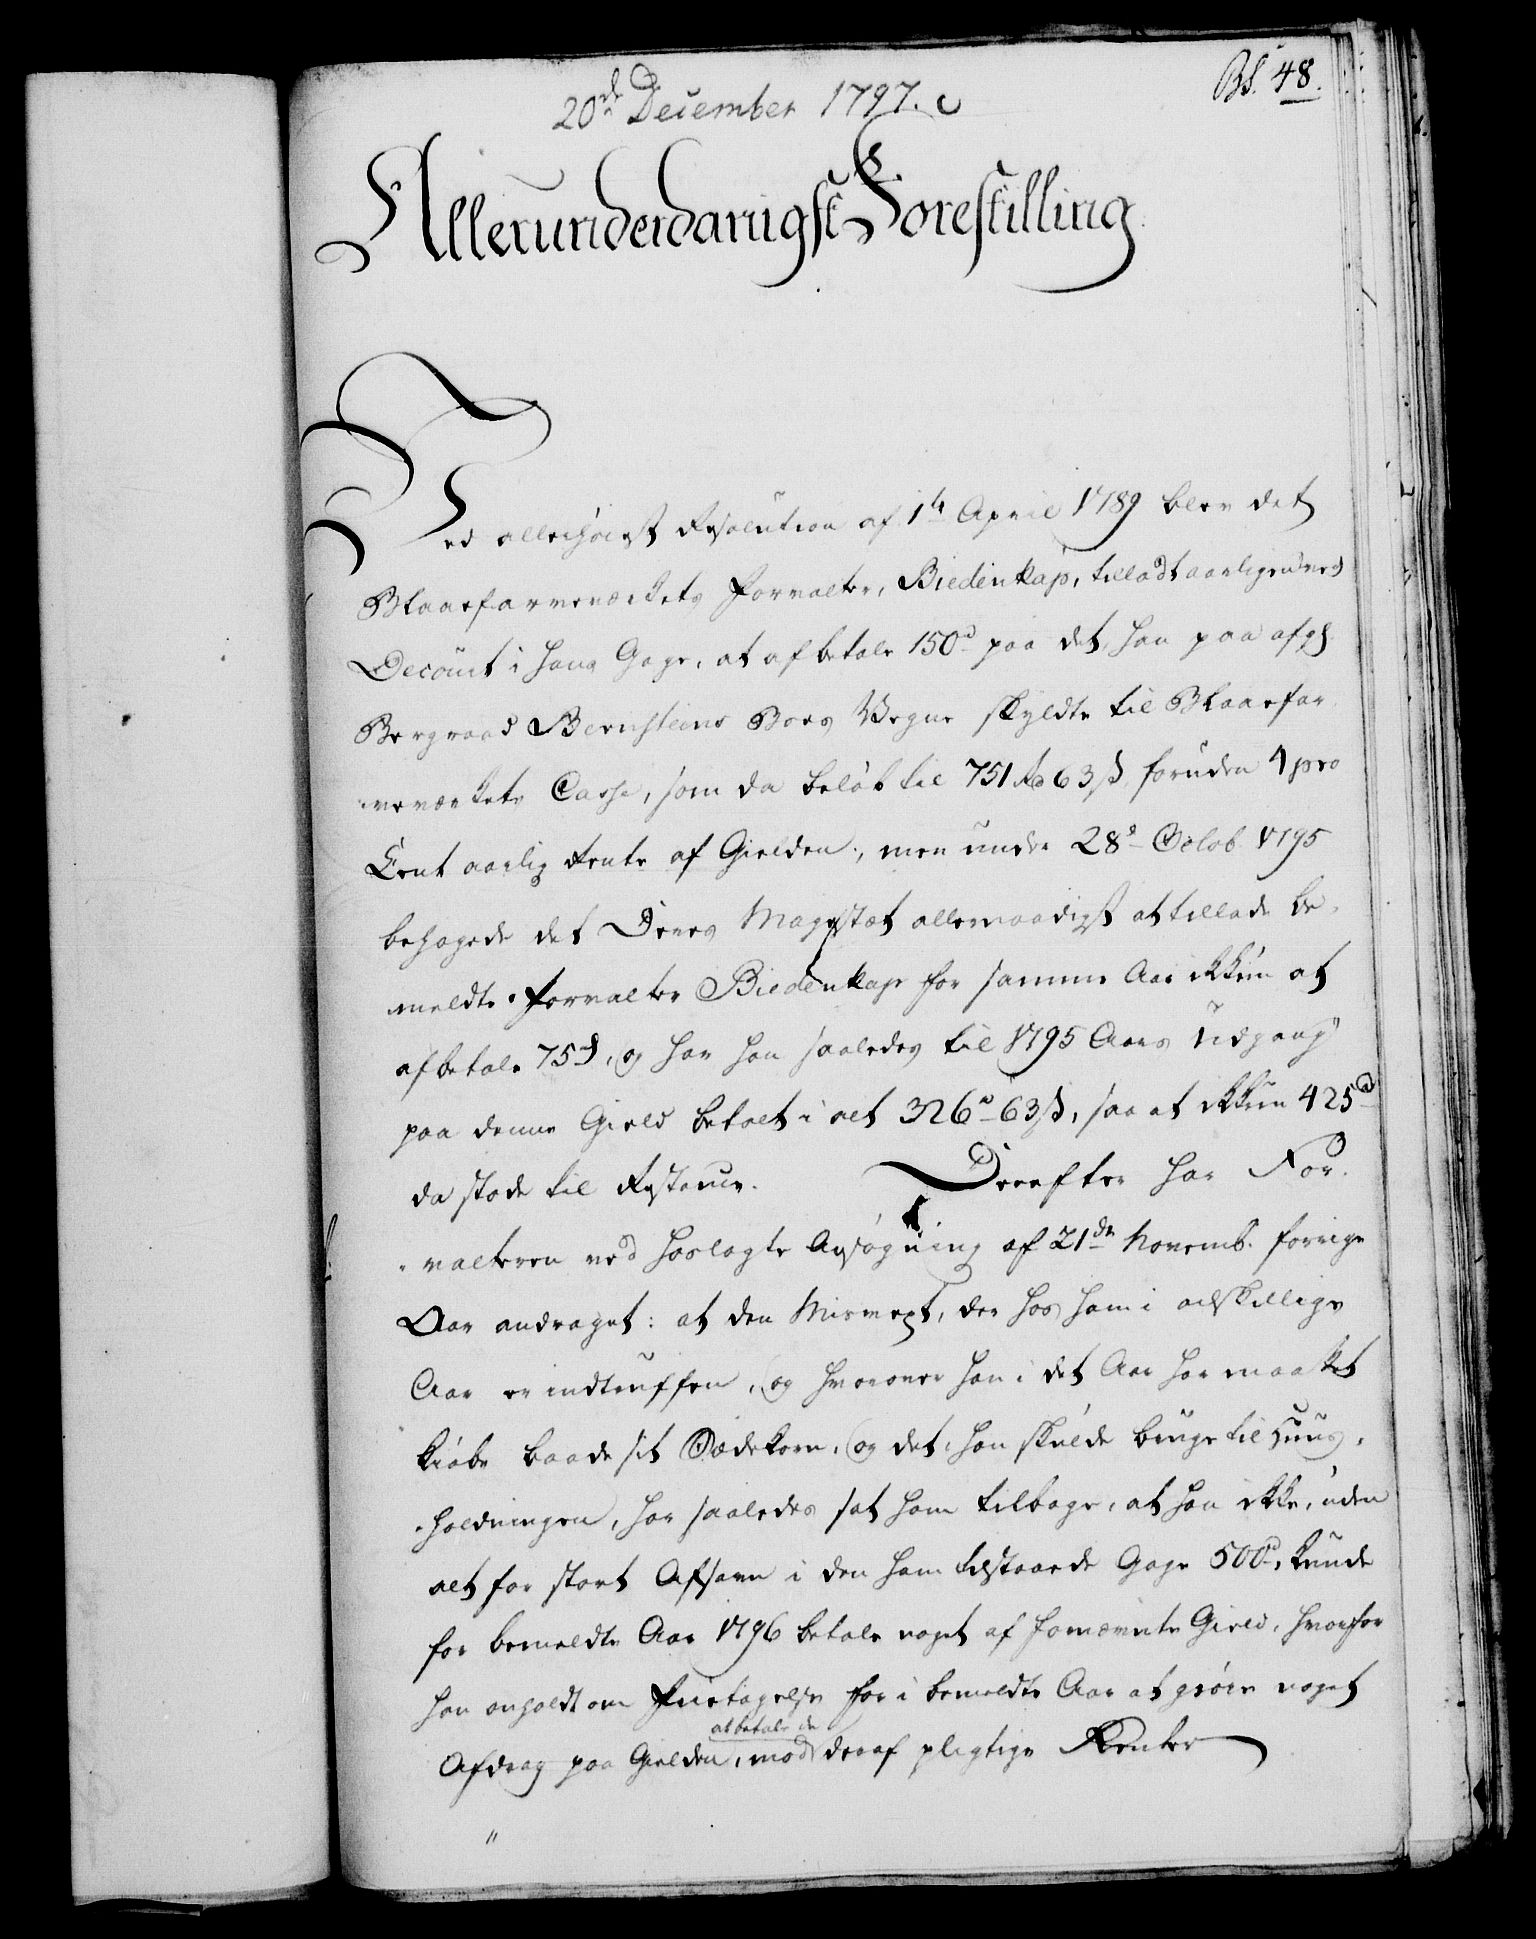 20de December 1797.
Bs. 48.
Allerunderdanigst Forestilling
Ved allerhøiest Resolution af 1te April 1789 blev det
Blaaefarveværkets Forvalter, Biedenkap, tilladt aarligen ved
Decourt i hans Gage, at afbetale 150d paa det, han paa afg.
Bergraad Bernsteins Boes Vegne skyldte til Blaaefar,
,veværkets Casse, som da beløb til 751 Rd 63 s, foruden 4 pro
Cent aarlig Rente af Gielden, men under 28d Octob. 1795
behagede det Deres Majestæt allernaadigst at tillade be,
meldte Forvalter Biedenkap for samme Aar ikkun at
afbetale 75d, og har han saaledes til 1795 Aars Udgang
paa denne Gield betalt i alt 326d 63 s, saa at ikkun 425d
da stode til Restance. Derefter har For,
,valteren ved hoslagte Ansøgning af 21de Novemb. forrige
Aar andraget: at den Misvext, der hos ham i adskillige
Aar er indtruffen, og hvorover han i det Aar har maattet
kiøbe baade sit Sædekorn, og det, han skulde bruge til Huus,
,holdningen, har saaledes sat ham tilbage, at han ikke, uden
alt for stort Afsavn i den ham tilstaaede Gage 500d, kunde
for bemeldte Aar 1796 betale noget af fornævnte Gield, hvorfor
han anholdt om Fritagelse for i bemeldte Aar at giøre noget
Afdrag paa Gielden, mod at betale de deraf pligtige Renter